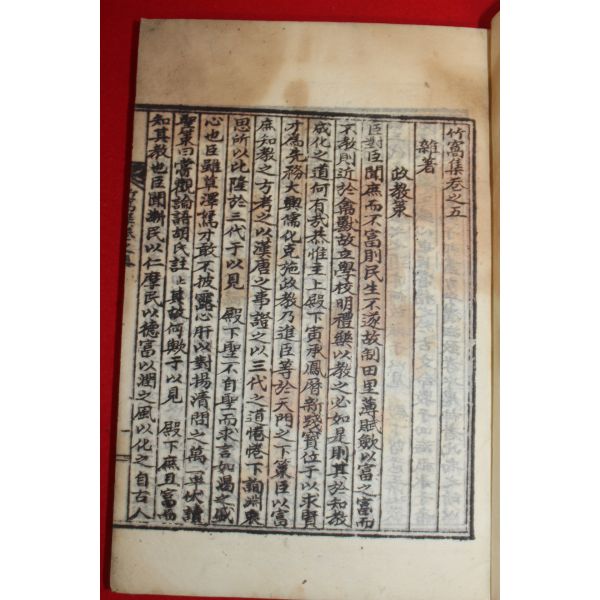 竹窩集卷之五
雜著
政教策
臣對臣聞庶而不富則民生不遂故制田里薄賦斂以富之富而
不教則近於禽獸故立學校明禮樂以教之必如是則其於知教
成化之道何有哉恭惟主上殿下寅承鳳曆新踐寶位于以求賢
才為先務大興儒化克施政教乃進臣等於天門之下策臣以富
庶知教之方考之以漢唐之事證之以三代之道惓惓下詢淵衷
思所以比隆於三代于以見 殿下聖不自聖而求言如渴之盛
心也臣雖草澤 才敢不披露心肝以對揚清問之萬一乎伏讀
聖策曰嘗觀論語胡氏註止其故何歟于以見 殿下庶且富而
知其教也臣聞漸民以仁摩民以德富以潤之風以化之自古人